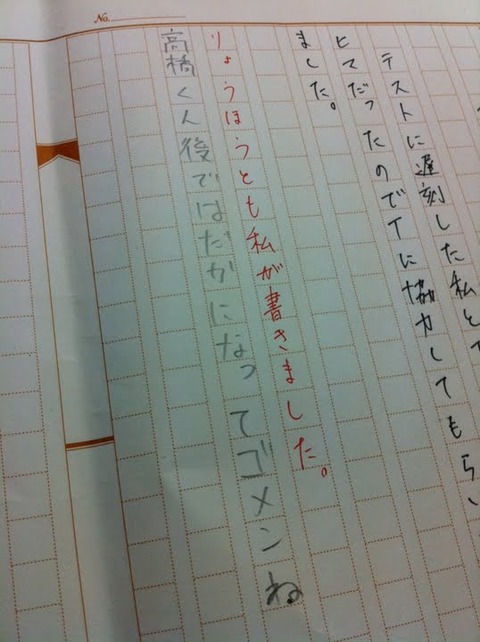 テストに遅刻した私と
ヒマだったのでTに協力してもらい
ました。
りょうほうとも私が書きました。
高橋くん後ではだかになってゴメンね
No.